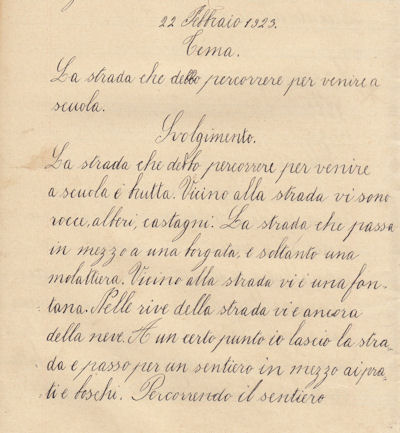 22 Febbraio 1923.
Tema.
La strada che debbo percorrere per venire a
scuola.
Svolgimento.
La strada che debbo percorrere per venire
a scuola è brutta. Vicino alla strada vi sono
rocce, alberi, castagni. La strada che passa
in mezzo a una borgata, è soltanto una
molattiera. Vicino alla strada vi è una fon-
tana. Nelle rive della strada vi è ancora
della neve. A un certo punto io lascio la stra-
da e passo per un sentiero in mezzo ai pra-
ti e boschi. Percorrendo il sentiero